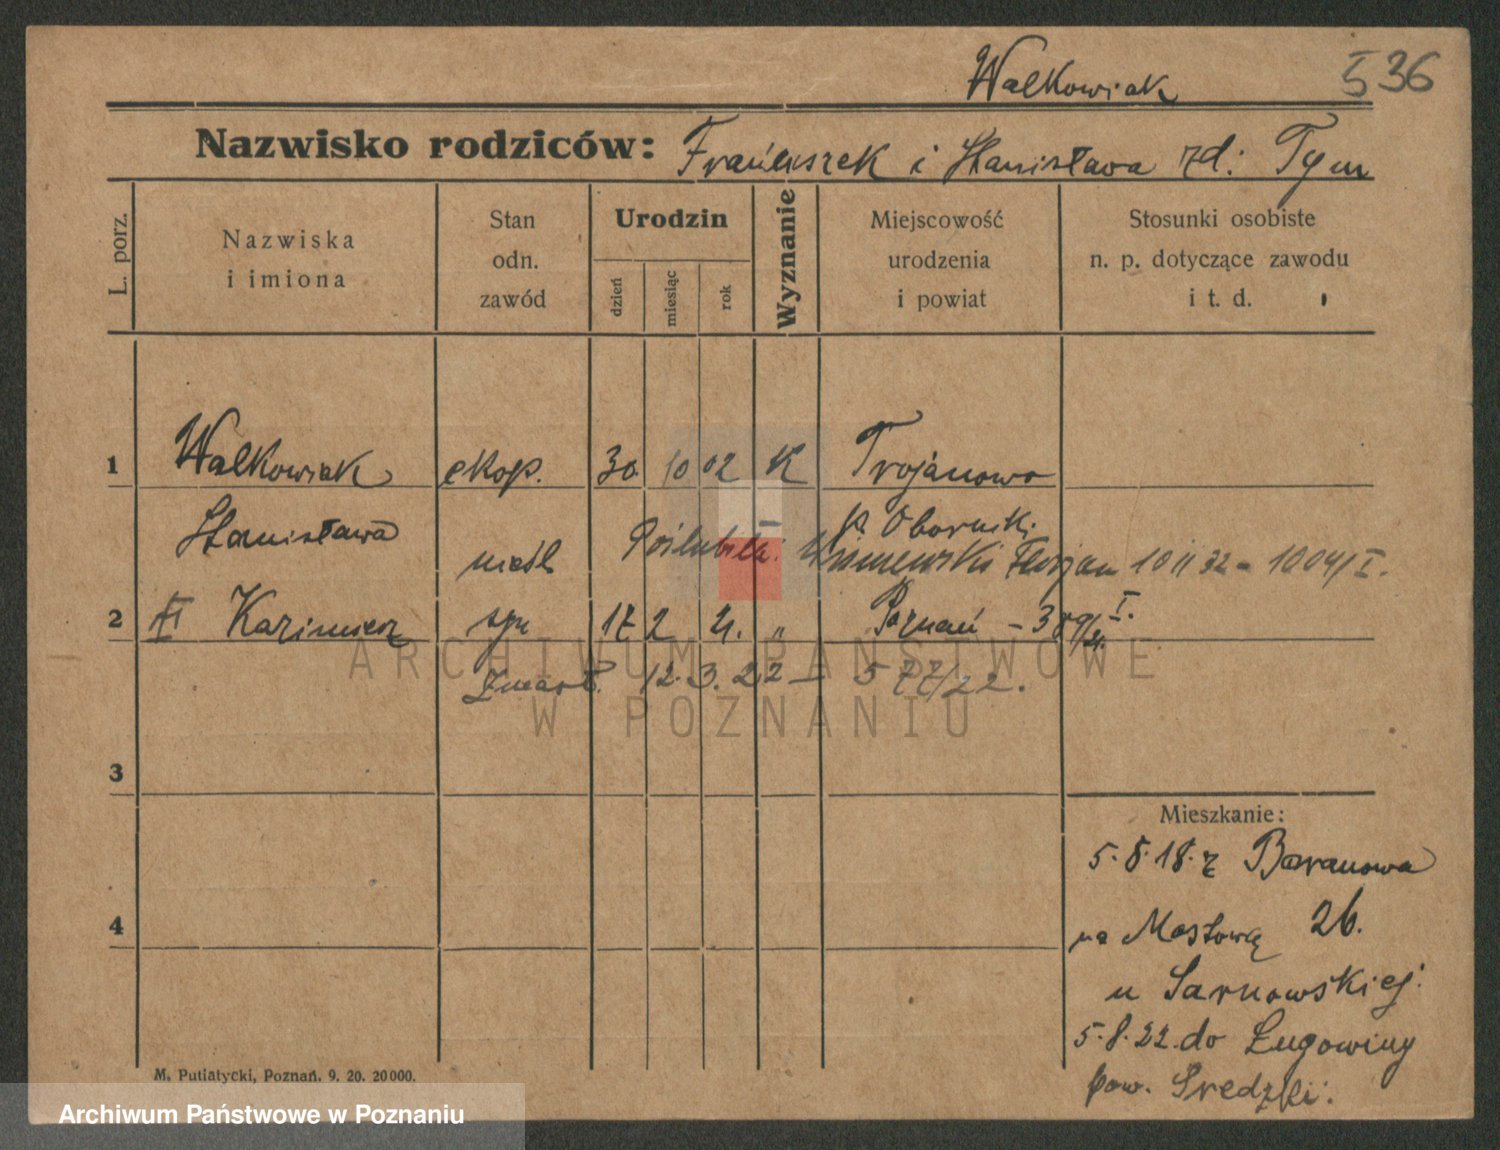 Walkowiak 536
Nazwisko rodziców: Franciszek i Stanisława zd: Tym
L. porz.
Nazwiska i imiona
Stan odn. zawód
Urodzin
dzień
miesiąc
rok
Wyznanie
Miejscowość urodzenia i powiat
Stosunki osobiste n. p. dotyczące zawodu i t. d.
1 Walkowiak eksp. 30 10 02 K Trojanowo
Stanisława p. Oborniki
nieśl Poślubiła: Wiśniewski Florjan 10 11 32 - 1004/I.
2 Kazimierz syn 17 2 21. „ Poznań - 389/21. I.
zmarł. 12. 3. 22 - 577/22.
ARCHIWUM PAŃSTWOWE
W POZNANIU
3
Mieszkanie:
5. 8. 18. z Baranowa
4
na Mostową 26.
u Sarnowskiej.
5. 8. 22. do Ługowiny
pow. Średzki.
M. Putiatycki, Poznań. 9. 20. 20000.
Archiwum Państwowe w Poznaniu